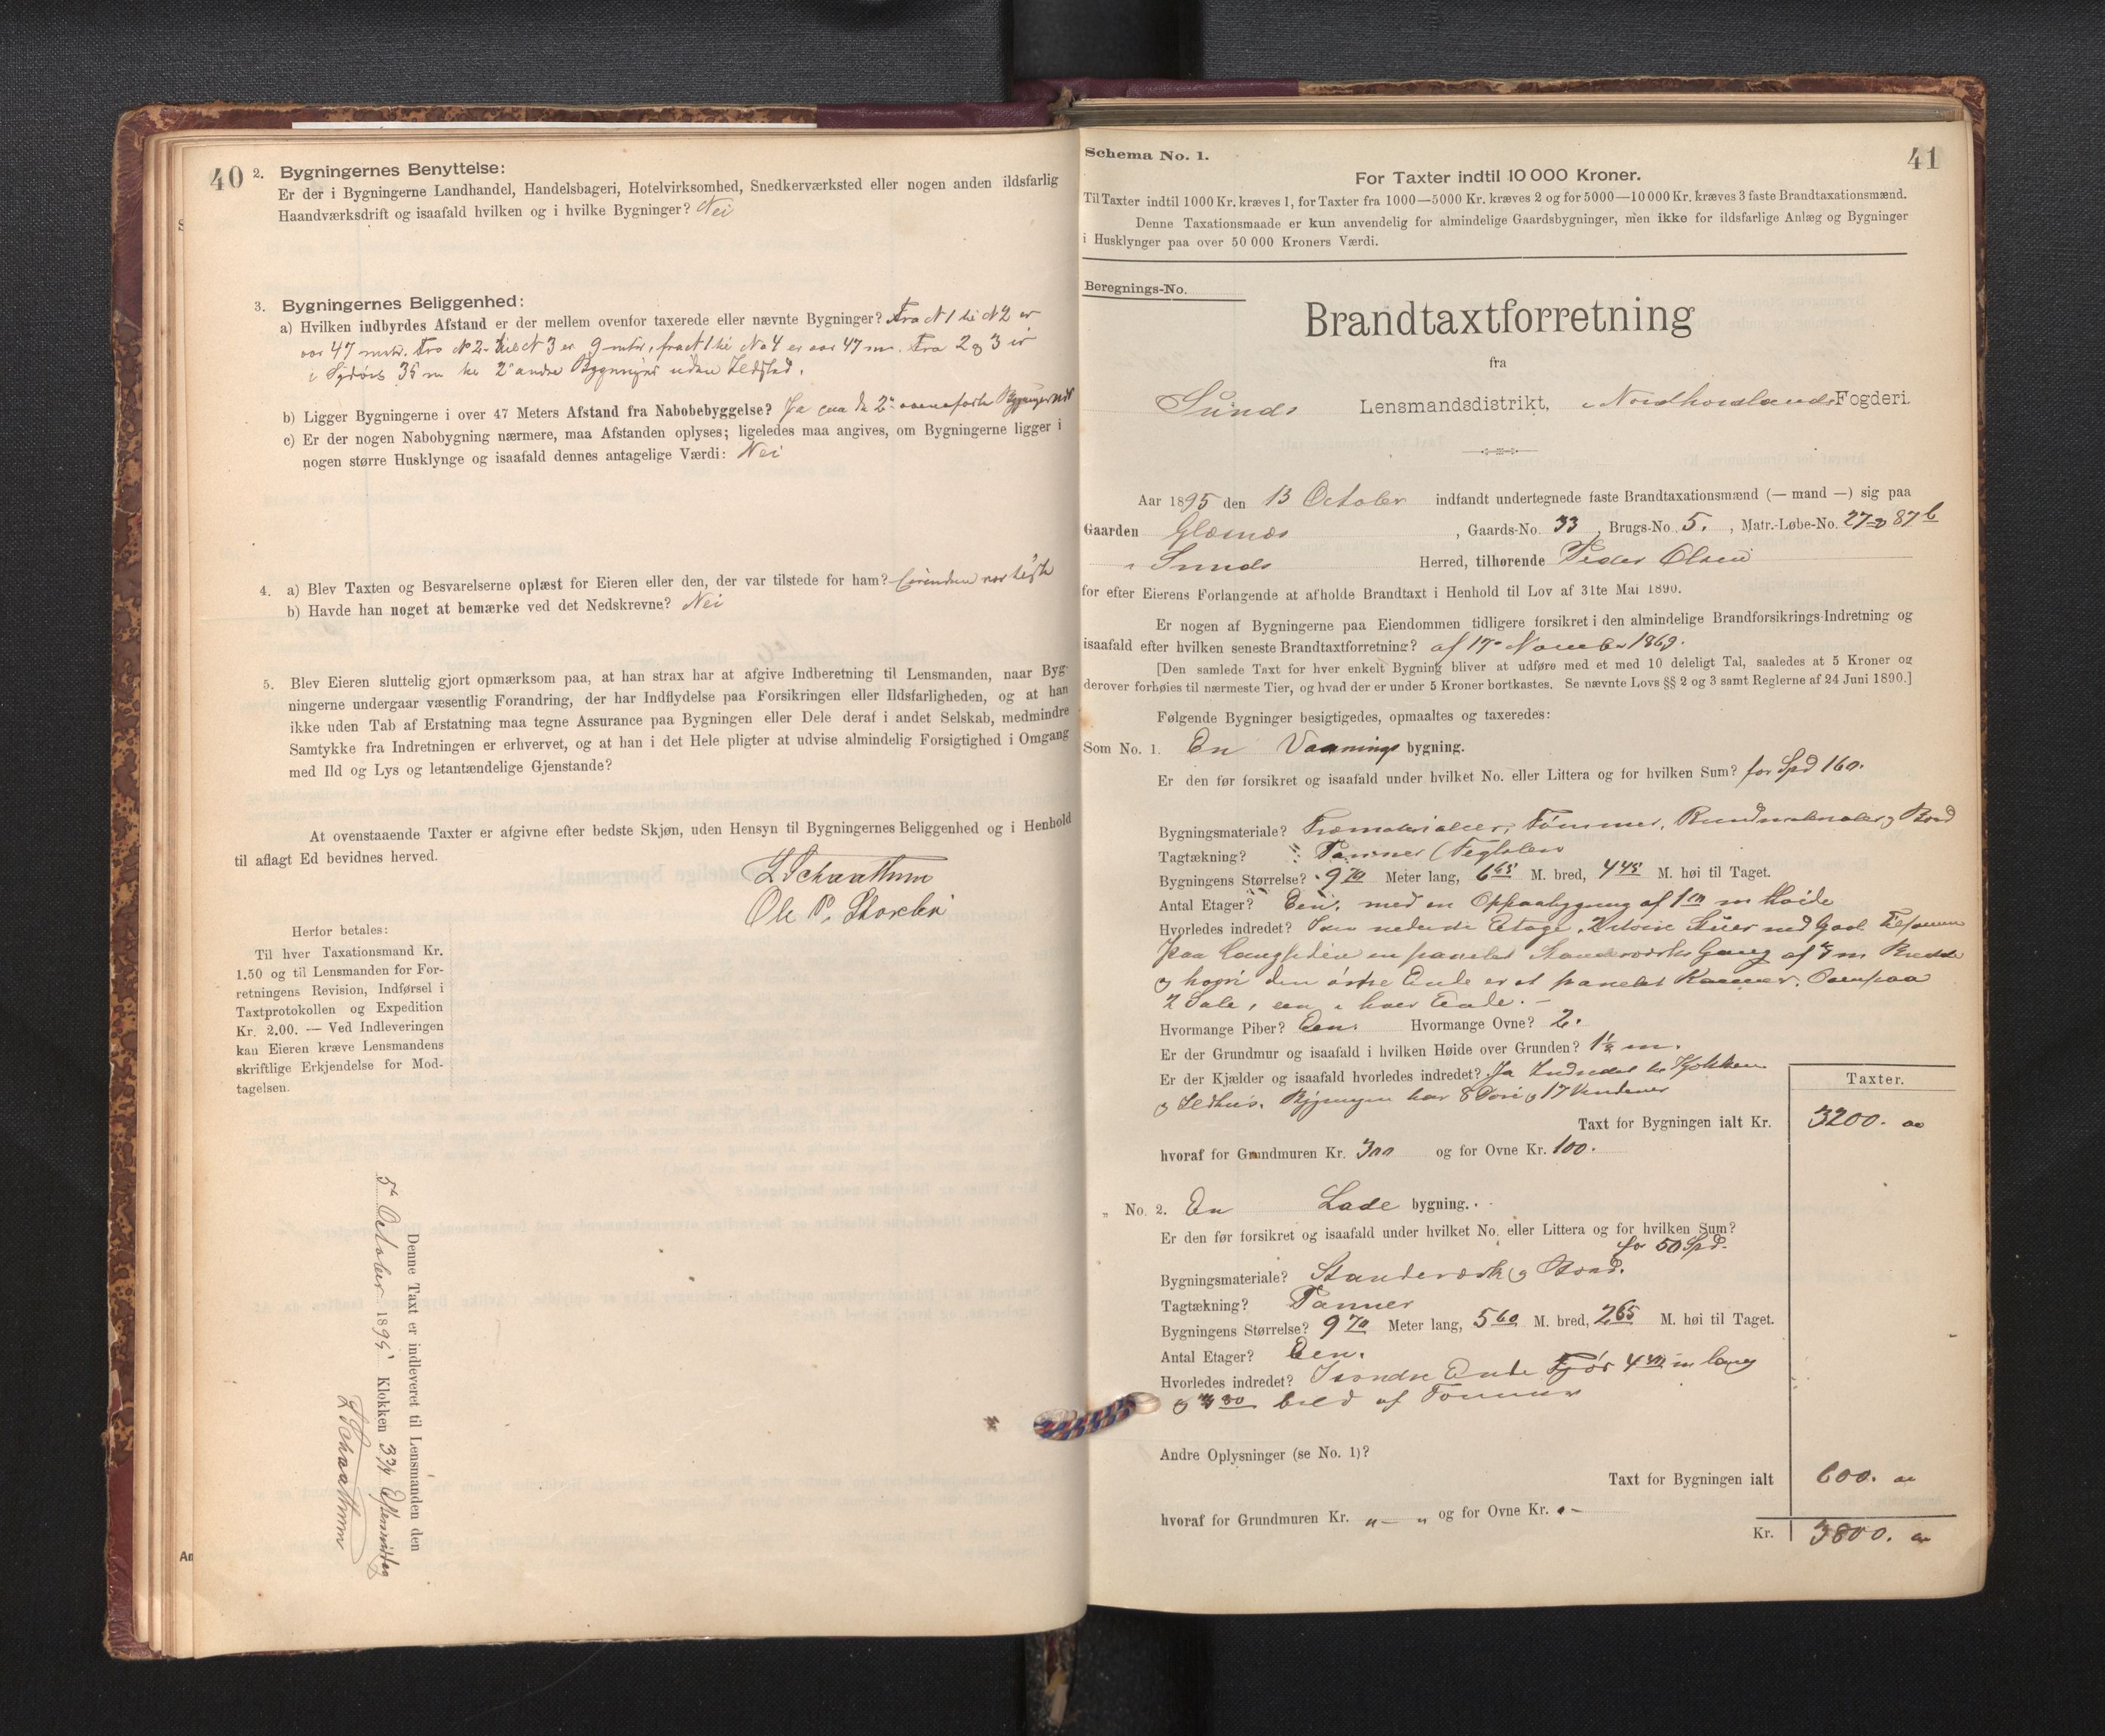 40
2. Bygningernes Benyttelse:
Er der i Bygningerne Landhandel, Handelsbageri, Hotelvirksomhed, Snedkerværksted eller nogen anden ildsfarlig
Haandværksdrift og isaafald hvilken og i hvilke Bygninger? Nei
3. Bygningernes Beliggenhed:
a) Hvilken indbyrdes Afstand er der mellem ovenfor taxerede eller nævnte Bygninger? Fra N 1 til N 2 er
47 metr. Fra N 2 til N 3 er 9 mtr, fra N 1 til No 4 er 47 m. Fra 2 og 3 er
i 35 m til 2 andre Bygninger uden Ildsted.
b) Ligger Bygningerne i over 47 Meters Afstand fra Nabobebyggelse? Ja paa de 2 Bygninger nær
c) Er der nogen Nabobygning nærmere, maa Afstanden oplyses; ligeledes maa angives, om Bygningerne ligger i
nogen større Husklynge og isaafald dennes antagelige Værdi: Nei
4. a) Blev Taxten og Besvarelserne oplæst for Eieren eller den, der var tilstede for ham?
b) Havde han noget at bemærke ved det Nedskrevne? Nei
5. Blev Eieren sluttelig gjort opmærksom paa, at han strax har at afgive Indberetning til Lensmanden, naar Byg-
ningerne undergaar væsentlig Forandring, der har Indflydelse paa Forsikringen eller Ildsfarligheden, og at han
ikke uden Tab af Erstatning maa tegne Assurance paa Bygningen eller Dele deraf i andet Selskab, medmindre
Samtykke fra Indretningen er erhvervet, og at han i det Hele pligter at udvise almindelig Forsigtighed i Omgang
med Ild og Lys og letantændelige Gjenstande?
At ovenstaaende Taxter er afgivne efter bedste Skjøn, uden Hensyn til Bygningernes Beliggenhed og i Henhold
til aflagt Ed bevidnes herved.
L Schaathun
Ole P.
Herfor betales:
Til hver Taxationsmand Kr.
1.50 og til Lensmanden for For-
retningens Revision, Indførsel i
Taxtprotokollen og Expedition
Kr. 2.00. — Ved Indleveringen
kan Eieren kræve Lensmandens
skriftlige Erkjendelse for Mod-
tagelsen.
Denne Taxt er indleveret til Lensmanden den
5te October 1895 Klokken 3¾ Eftermiddag
L Schaathun
41
Schema No. 1.
For Taxter indtil 10 000 Kroner.
Til Taxter indtil 1000 Kr. kræves 1, for Taxter fra 1000—5000 Kr. kræves 2 og for 5000—10 000 Kr. kræves 3 faste Brandtaxationsmænd.
Denne Taxationsmaade er kun anvendelig for almindelige Gaardsbygninger, men ikke for ildsfarlige Anlæg og Bygninger
i Husklynger paa over 50 000 Kroners Værdi.
Beregnings-No.
Brandtaxtforretning
fra
Sunds Lensmandsdistrikt, i Nordhordlands Fogderi.
Aar 1895 den 13 October indfandt undertegnede faste Brandtaxationsmænd (— mand —) sig paa
Gaarden Glæsnæs, Gaards-No. 33, Brugs-No. 5., Matr.-Løbe-No. 87b
i Sunds Herred, tilhørende Peder Olsen
for efter Eierens Forlangende at afholde Brandtaxt i Henhold til Lov af 31te Mai 1890.
Er nogen af Bygningerne paa Eiendommen tidligere forsikret i den almindelige Brandforsikrings-Indretning og
isaafald efter hvilken seneste Brandtaxtforretning? af 17de November 1869.
[Den samlede Taxt for hver enkelt Bygning bliver at udføre med et med 10 deleligt Tal, saaledes at 5 Kroner og
derover forhøies til nærmeste Tier, og hvad der er under 5 Kroner bortkastes. Se nævnte Lovs §§ 2 og 3 samt Reglerne af 24 Juni 1890.]
Følgende Bygninger besigtigedes, opmaaltes og taxeredes:
Som No. 1. En Vaanings bygning.
Er den før forsikret og isaafald under hvilket No. eller Littera og for hvilken Sum? for Spd 160.
Bygningsmateriale? Træmaterialier, Tømmer, og Bord
Tagtækning? Panner (Teglsten
Bygningens Størrelse? 9 70 Meter lang, 6 65 M. bred, 4 45 M. høi til Taget.
Antal Etager? Een, med en Oppaabygning af 1 m Høide
Hvorledes indredet? I den nederste Etage, 2 Stuer med Gad
Paa Langsiden en panelet Standværks Gang af m Bredde
og hvori den østre Ende er et panelet Kammer. Ovenpaa
2 Sale, een i hver Ende. —
Hvormange Piber? Een. Hvormange Ovne? 2.
Er der Grundmur og isaafald i hvilken Høide over Grunden? 1½ m.
Er der Kjælder og isaafald hvorledes indredet? Ja Indredet til Kjøkken
og Ildhus. Bygningen har 8 Døre og 17 Vinduer
Taxter.
Taxt for Bygningen ialt Kr. 3200.
hvoraf for Grundmuren Kr. 300 og for Ovne Kr. 100.
„ No. 2. En Lade bygning.
Er den før forsikret og isaafald under hvilket No. eller Littera og for hvilken Sum?
for 50 Spd.
Bygningsmateriale? Standværk og Bord.
Tagtækning? Panner
Bygningens Størrelse? 9 70 Meter lang, 5 60 M. bred, 2 65 M. høi til Taget.
Antal Etager? Een.
Hvorledes indredet? I søndre Ende Fjøs 4 m lang
og 3 80 bred af Tømmer
Andre Oplysninger (se No. 1)?
Taxt for Bygningen ialt 600.
hvoraf for Grundmuren Kr. „ — „ og for Ovne Kr. „ —
Kr. 3800.